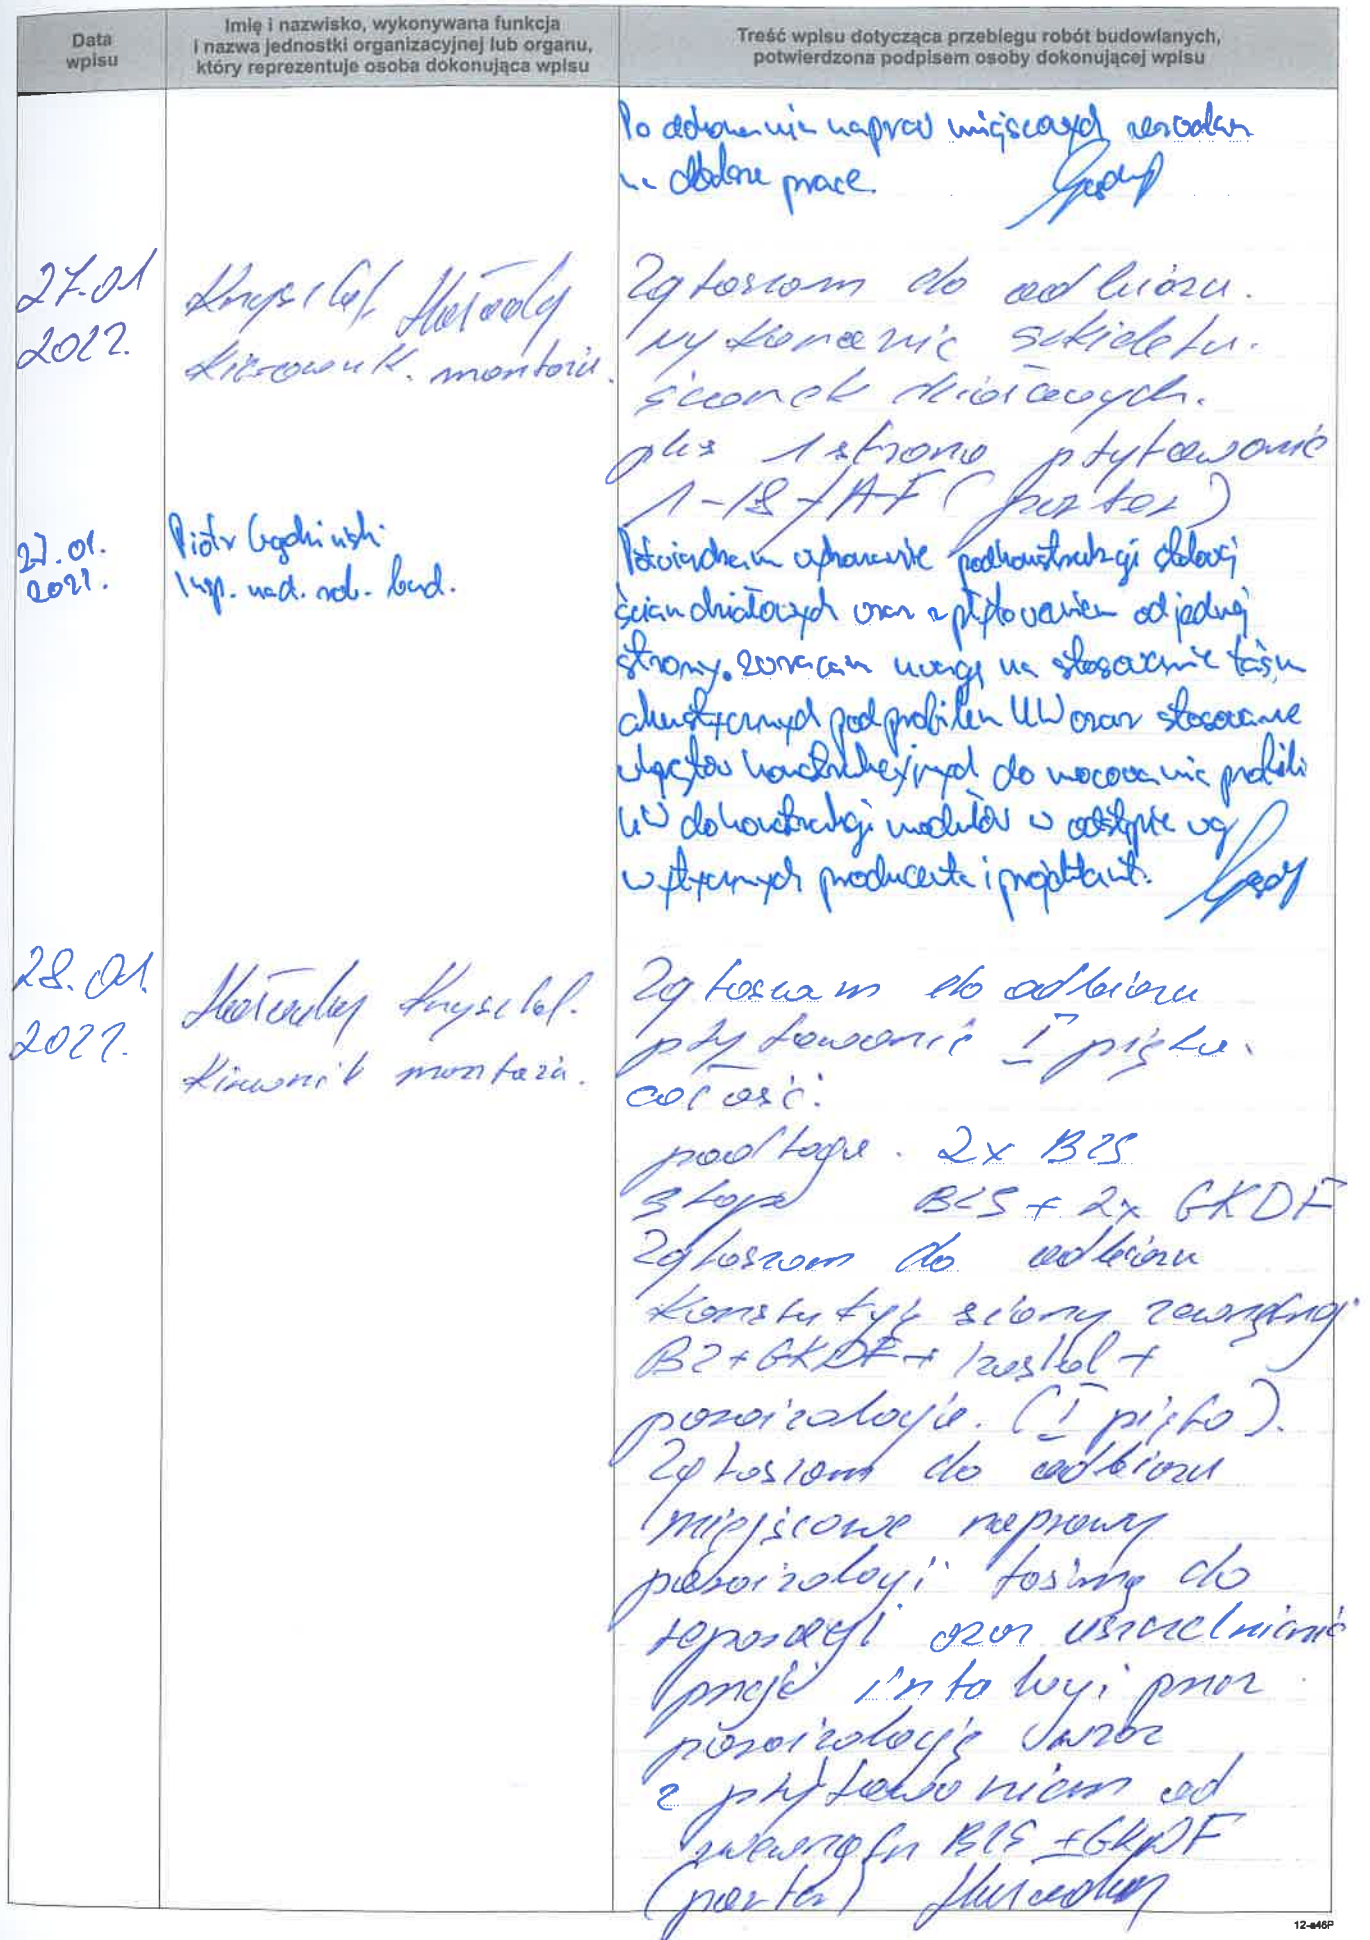 Data
wpisu
Imię i nazwisko, wykonywana funkcja
i nazwa jednostki organizacyjnej lub organu,
który reprezentuje osoba dokonująca wpisu
Treść wpisu dotycząca przebiegu robót budowlanych,
potwierdzona podpisem osoby dokonującej wpisu
Po dokonaniu napraw miejscowych zezwalam
na dalsze prace.
27.01
2022.
Kierownik. montażu.
Zgłaszam do odbioru.
wykonanie szkieletu.
ścianek działowych.
plus 1 strona płytowanie
1-18/A-F (parter)
27.01.
2022.
Piotr
Insp. nad. rob. bud.
Potwierdzam wykonanie podkonstrukcji stalowej
ścian działowych wraz z płytowaniem od jednej
strony. Zwracam uwagę na stosowanie taśm
akustycznych pod profilem UW oraz stosowanie
wkrętów konstrukcyjnych do mocowania profili
UW do konstrukcji modułów w odstępie wg
wytycznych producenta i projektanta.
28.01.
2022.
Kierownik montażu.
Zgłaszam do odbioru
płytowanie I piętro.
całość.
podłoga. 2x B25
stropu B25 + 2x GKDF
Zgłaszam do odbioru
Konstrukcję ściany zewnętrznej
B2+GKDF+
paroizolacje. (I piętro).
Zgłaszam do odbioru
miejscowe naprawy
paroizolacji taśmą do
reparacji oraz uszczelnienie
przejść instalacyji przez
paroizolację wraz
z płytowaniem od
wewnątrz B25 +GKDF
(parter)
12-a46P